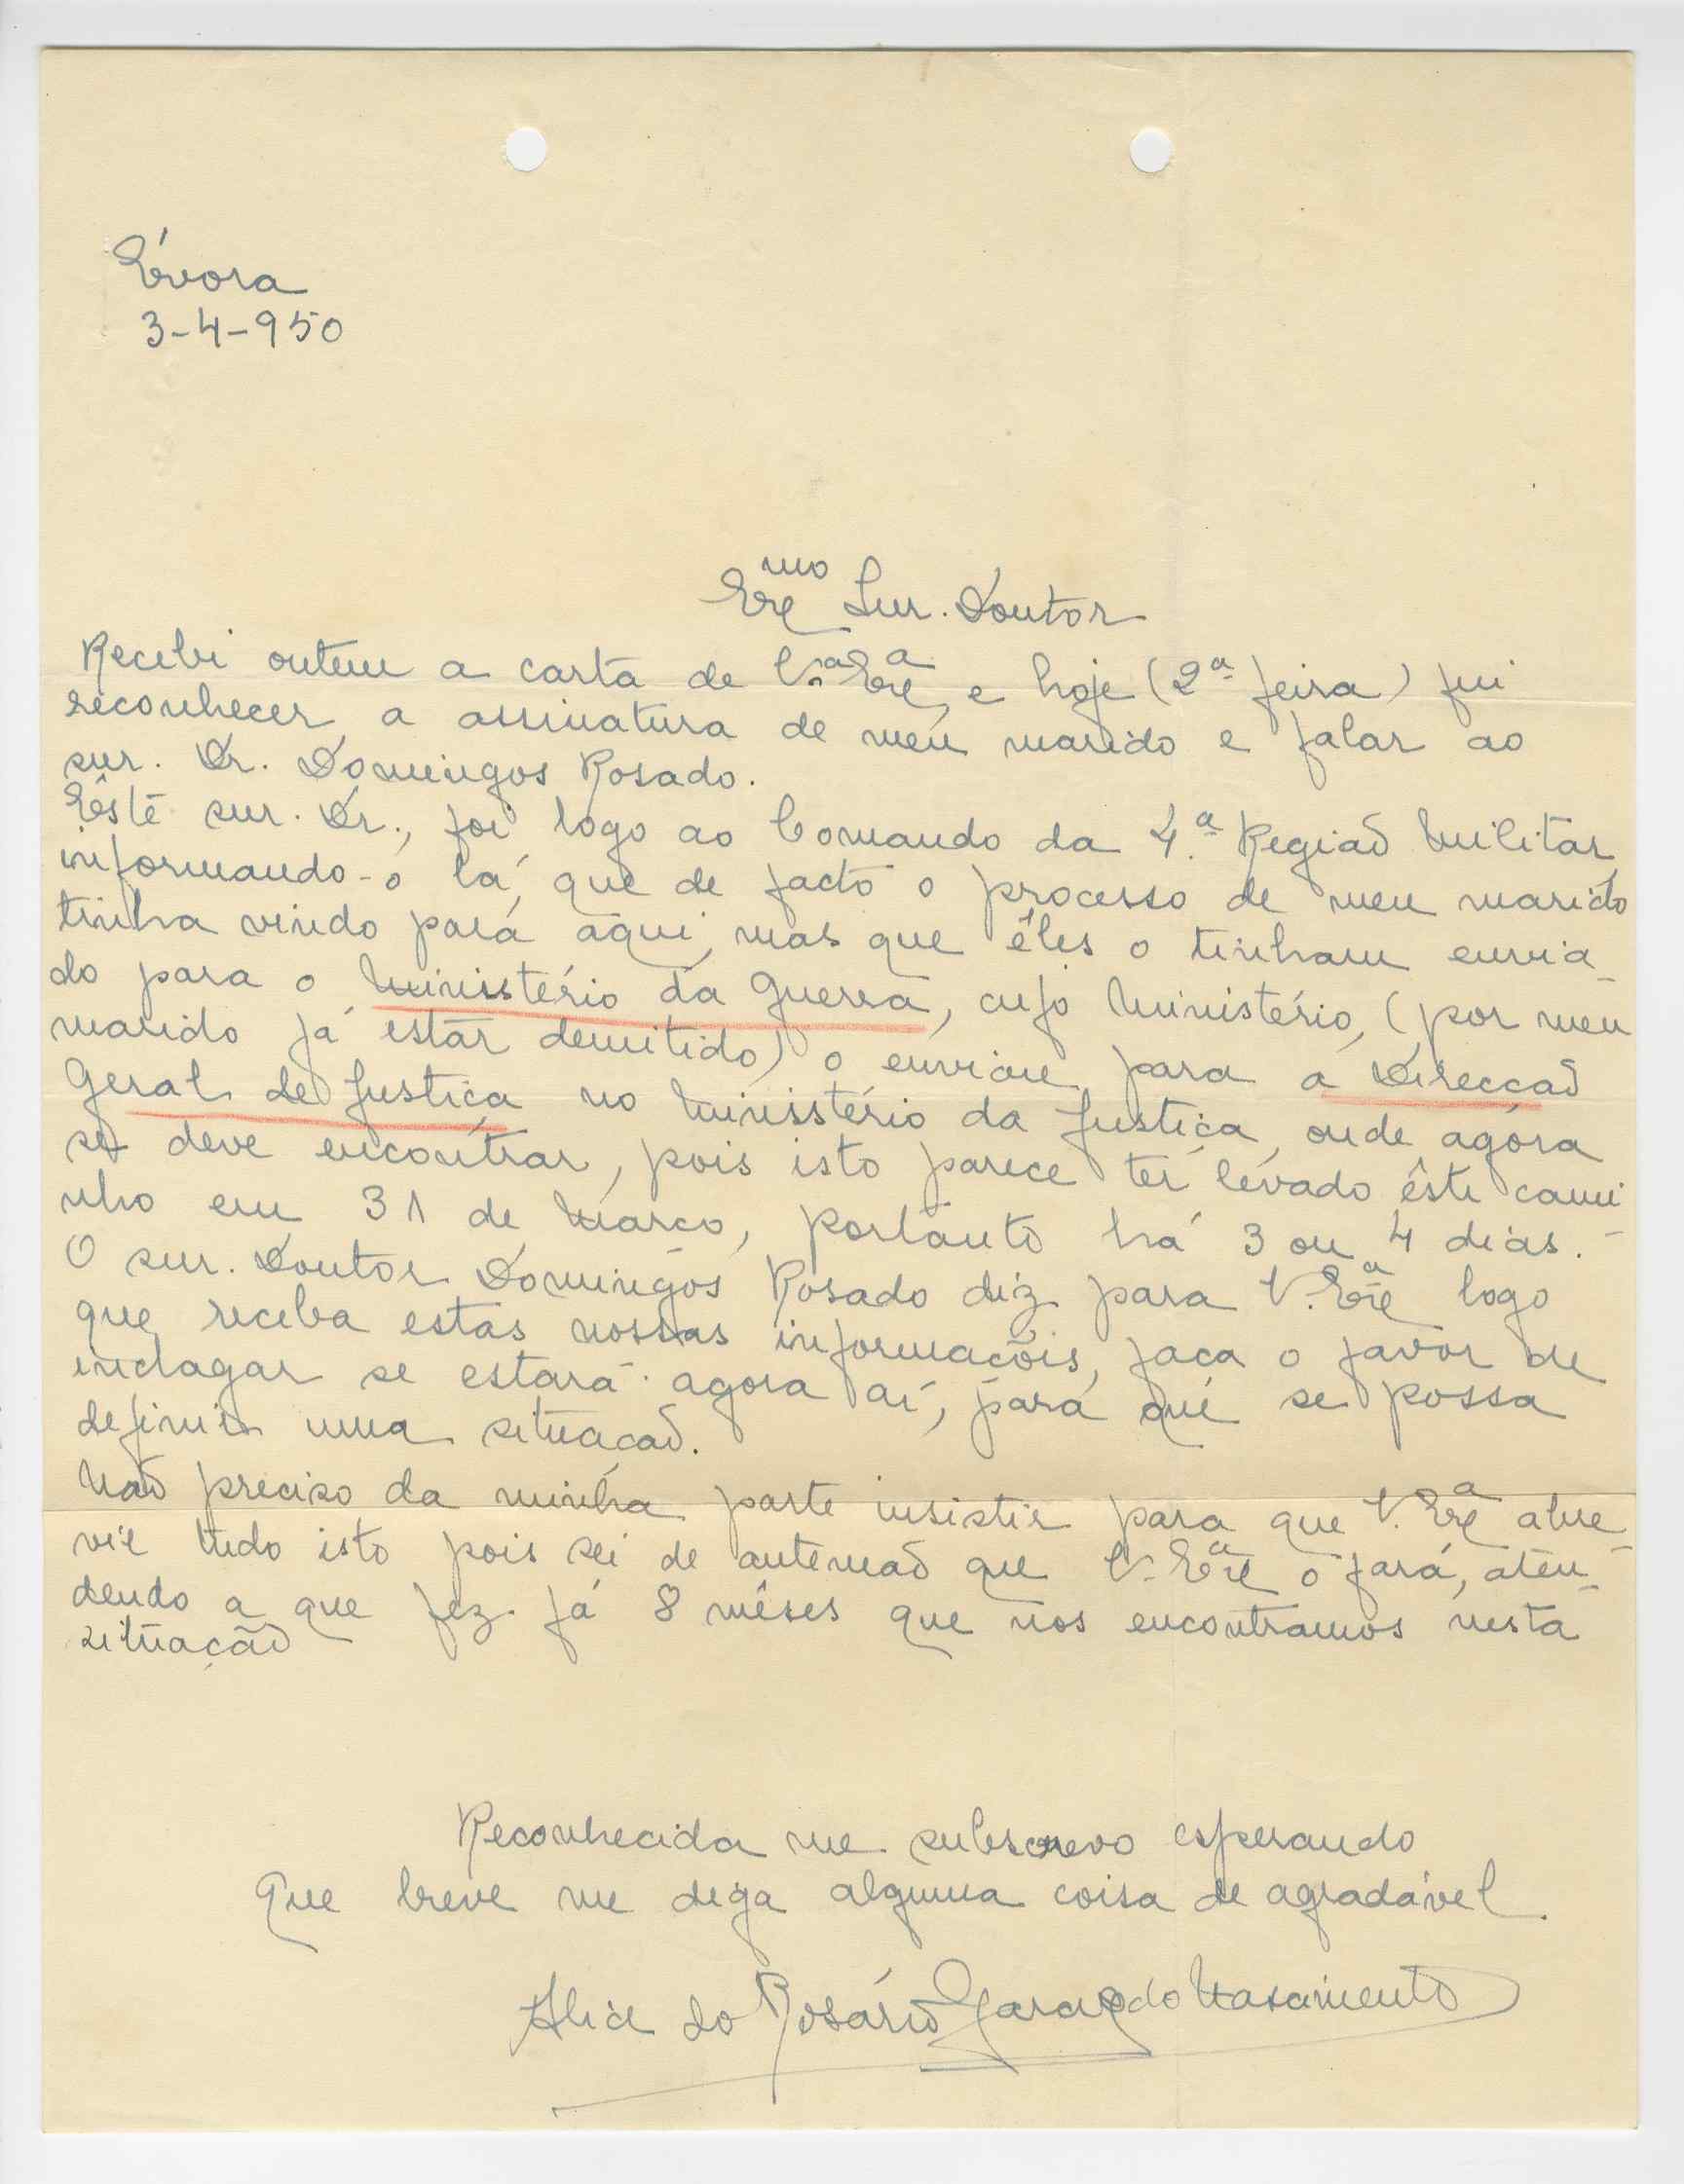 Évora
3-4-950
Exmo Snr. Doutor
Recebi ontem a carta de V.ª Exª, e hoje (2ª feira) fui
reconhecer a assinatura de meu marido e falar ao
snr. Dr. Domingos Rosado.
Êste snr. Dr., foi logo ao Comando da 4.ª Região Militar,
informando-o lá, que de facto o processo de meu marido
tinha vindo para aqui, mas que êles o tinham envia-
do para o Ministério da Guerra, cujo Ministério, (por meu
marido já estar demitido) o enviou para a Direcção
Geral de Justiça no Ministério da Justiça, onde agora
se deve encontrar, pois isto parece ter levado êste cami-
nho em 31 de Março, portanto há 3 ou 4 dias.
O snr. Doutor Domingos Rosado diz para V. Exª logo
que receba estas nossas informações, faça o favor de
indagar se estará agora aí, para que se possa
definir uma situação.
Não preciso da minha parte insistir para que V. Exª abre-
vie tudo isto pois sei de antemão que V. Exª o fará, aten-
dendo a que fez já 8 mêses que nos encontramos nesta
situação
Reconhecida me subscrevo esperando
Que breve me diga alguma coisa de agradável.
Alice do Rosário do Nascimento